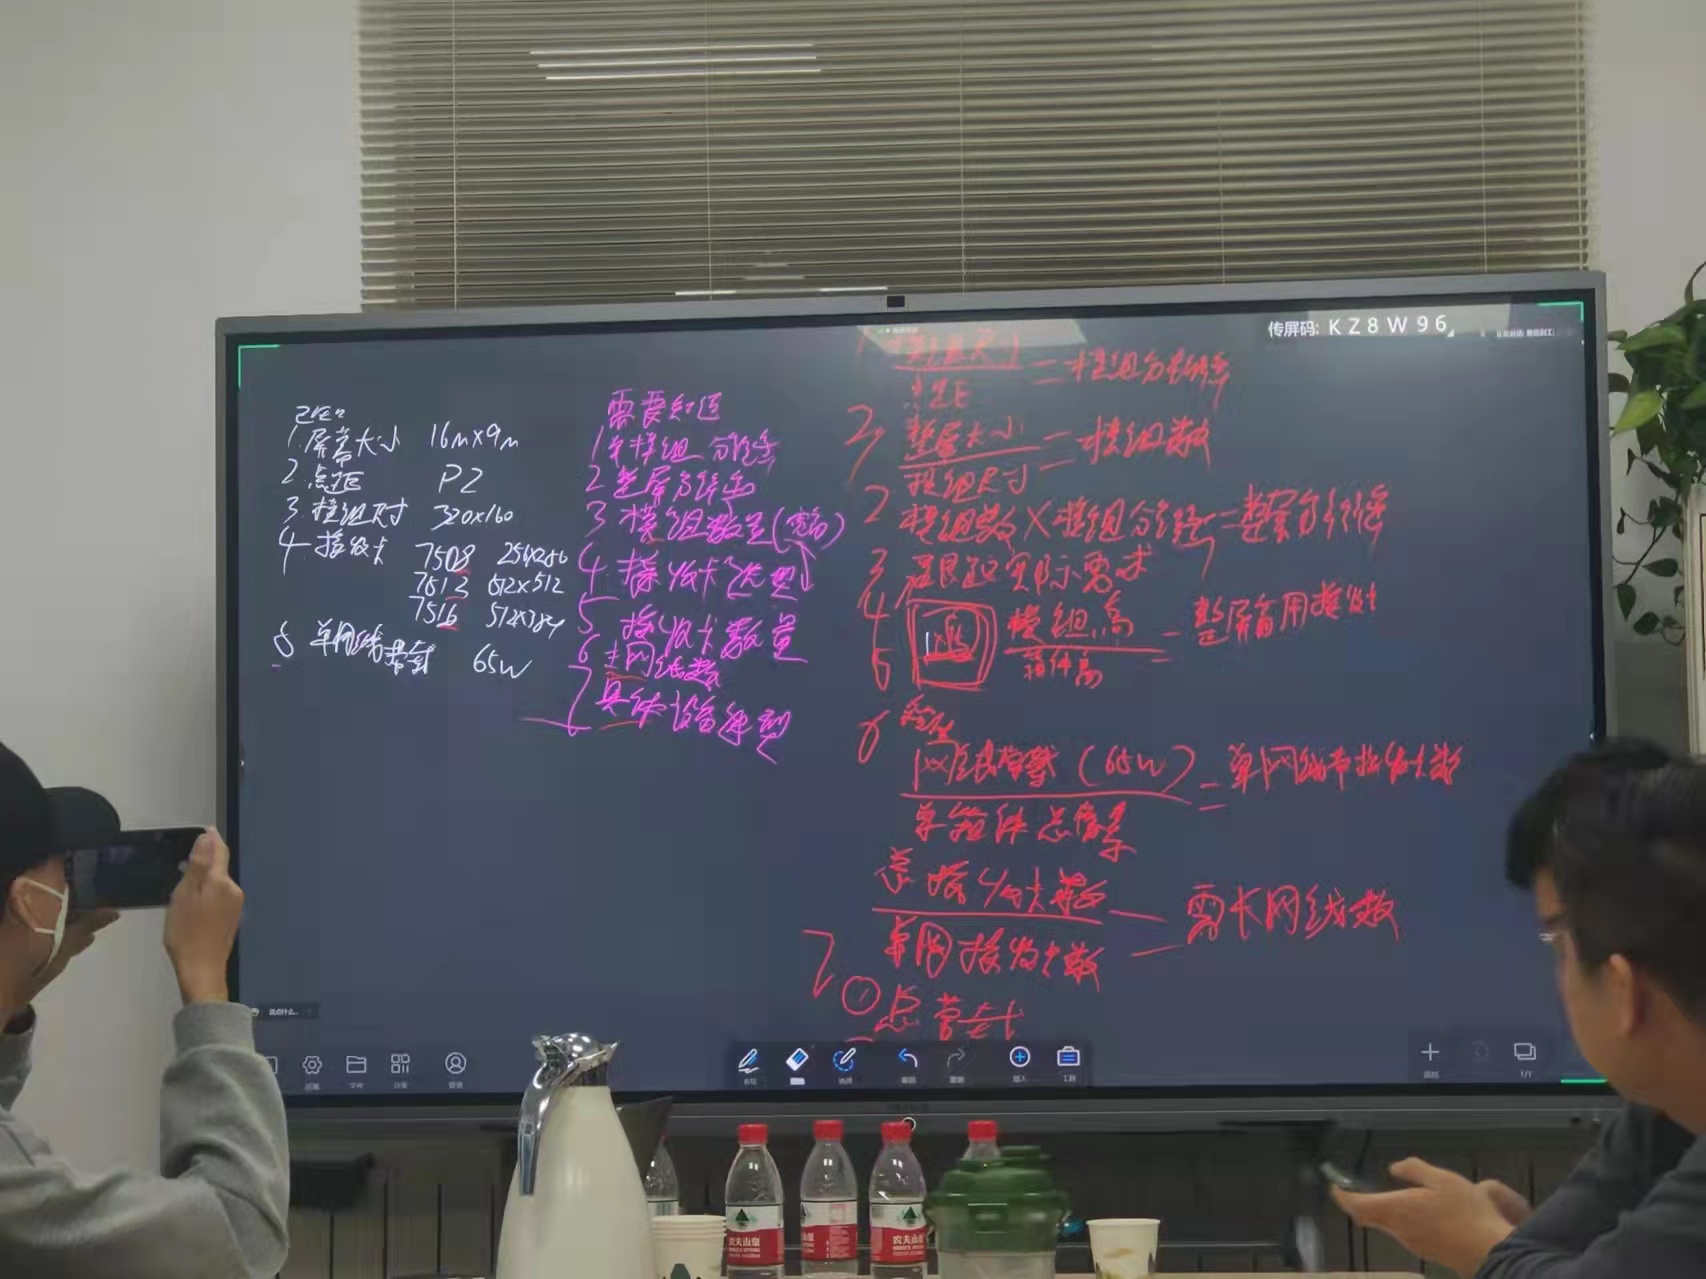 传屏码: KZ8W96
已知
1. 屏幕大小 16m×9m
2. 点距 P2
3. 模组尺寸 320×160
4. 接收卡 7508 256×256
7512 512×512
7516 512×384
单网线带载 65W
需要知道
1 单模组分辨率
2 整屏分辨率
3 模组数量(宽高)
4 接收卡选型
5 接收卡数量
6 主网线数
7 具体设备选型
1 模组尺寸
点距
=模组分辨率
2, 整屏大小
模组尺寸
=模组数
2 模组数×模组分辨率=整屏分辨率
3 实际需求
4
5 模组高
箱体高
整屏需用接收卡
6 网线带载(65W)
单箱体总像素
=单网线带接收卡数
总接收卡数
单网接收卡数
=需长网线数
7 ① 总带载
农夫山泉
农夫山泉